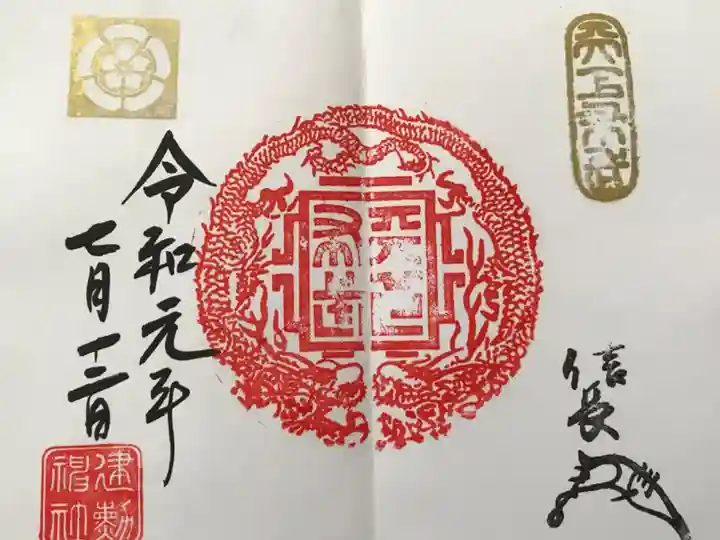 天下布武
信長
天下
布武
令和元年
七月十三日
建勲
神社